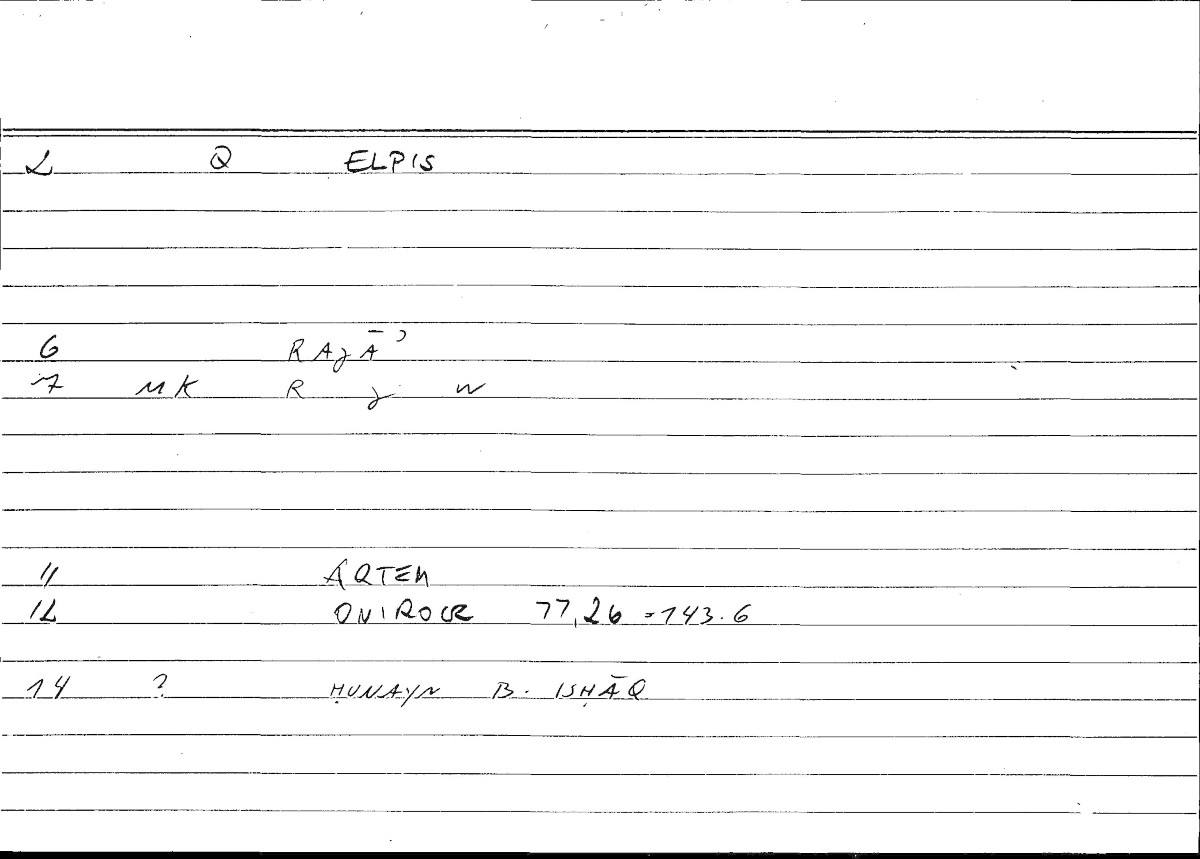 2 Q ELPIS
6 RAJĀʾ
7 MK R J W
11 ARTEM
12 ONIROCR 77,26 = 143.6
14 ? ḤUNAYN B. ISḤĀQ